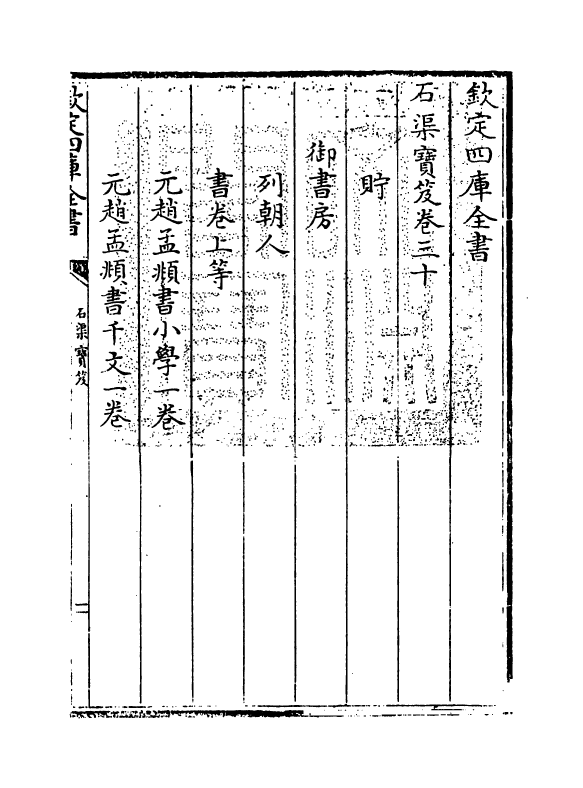 欽定四庫全書
石渠寶笈卷三十
貯
御書房
列朝人
書卷上等
元趙孟頫書小學一卷
元趙孟頫書千文一卷
欽定四庫全書
石渠寶笈
一